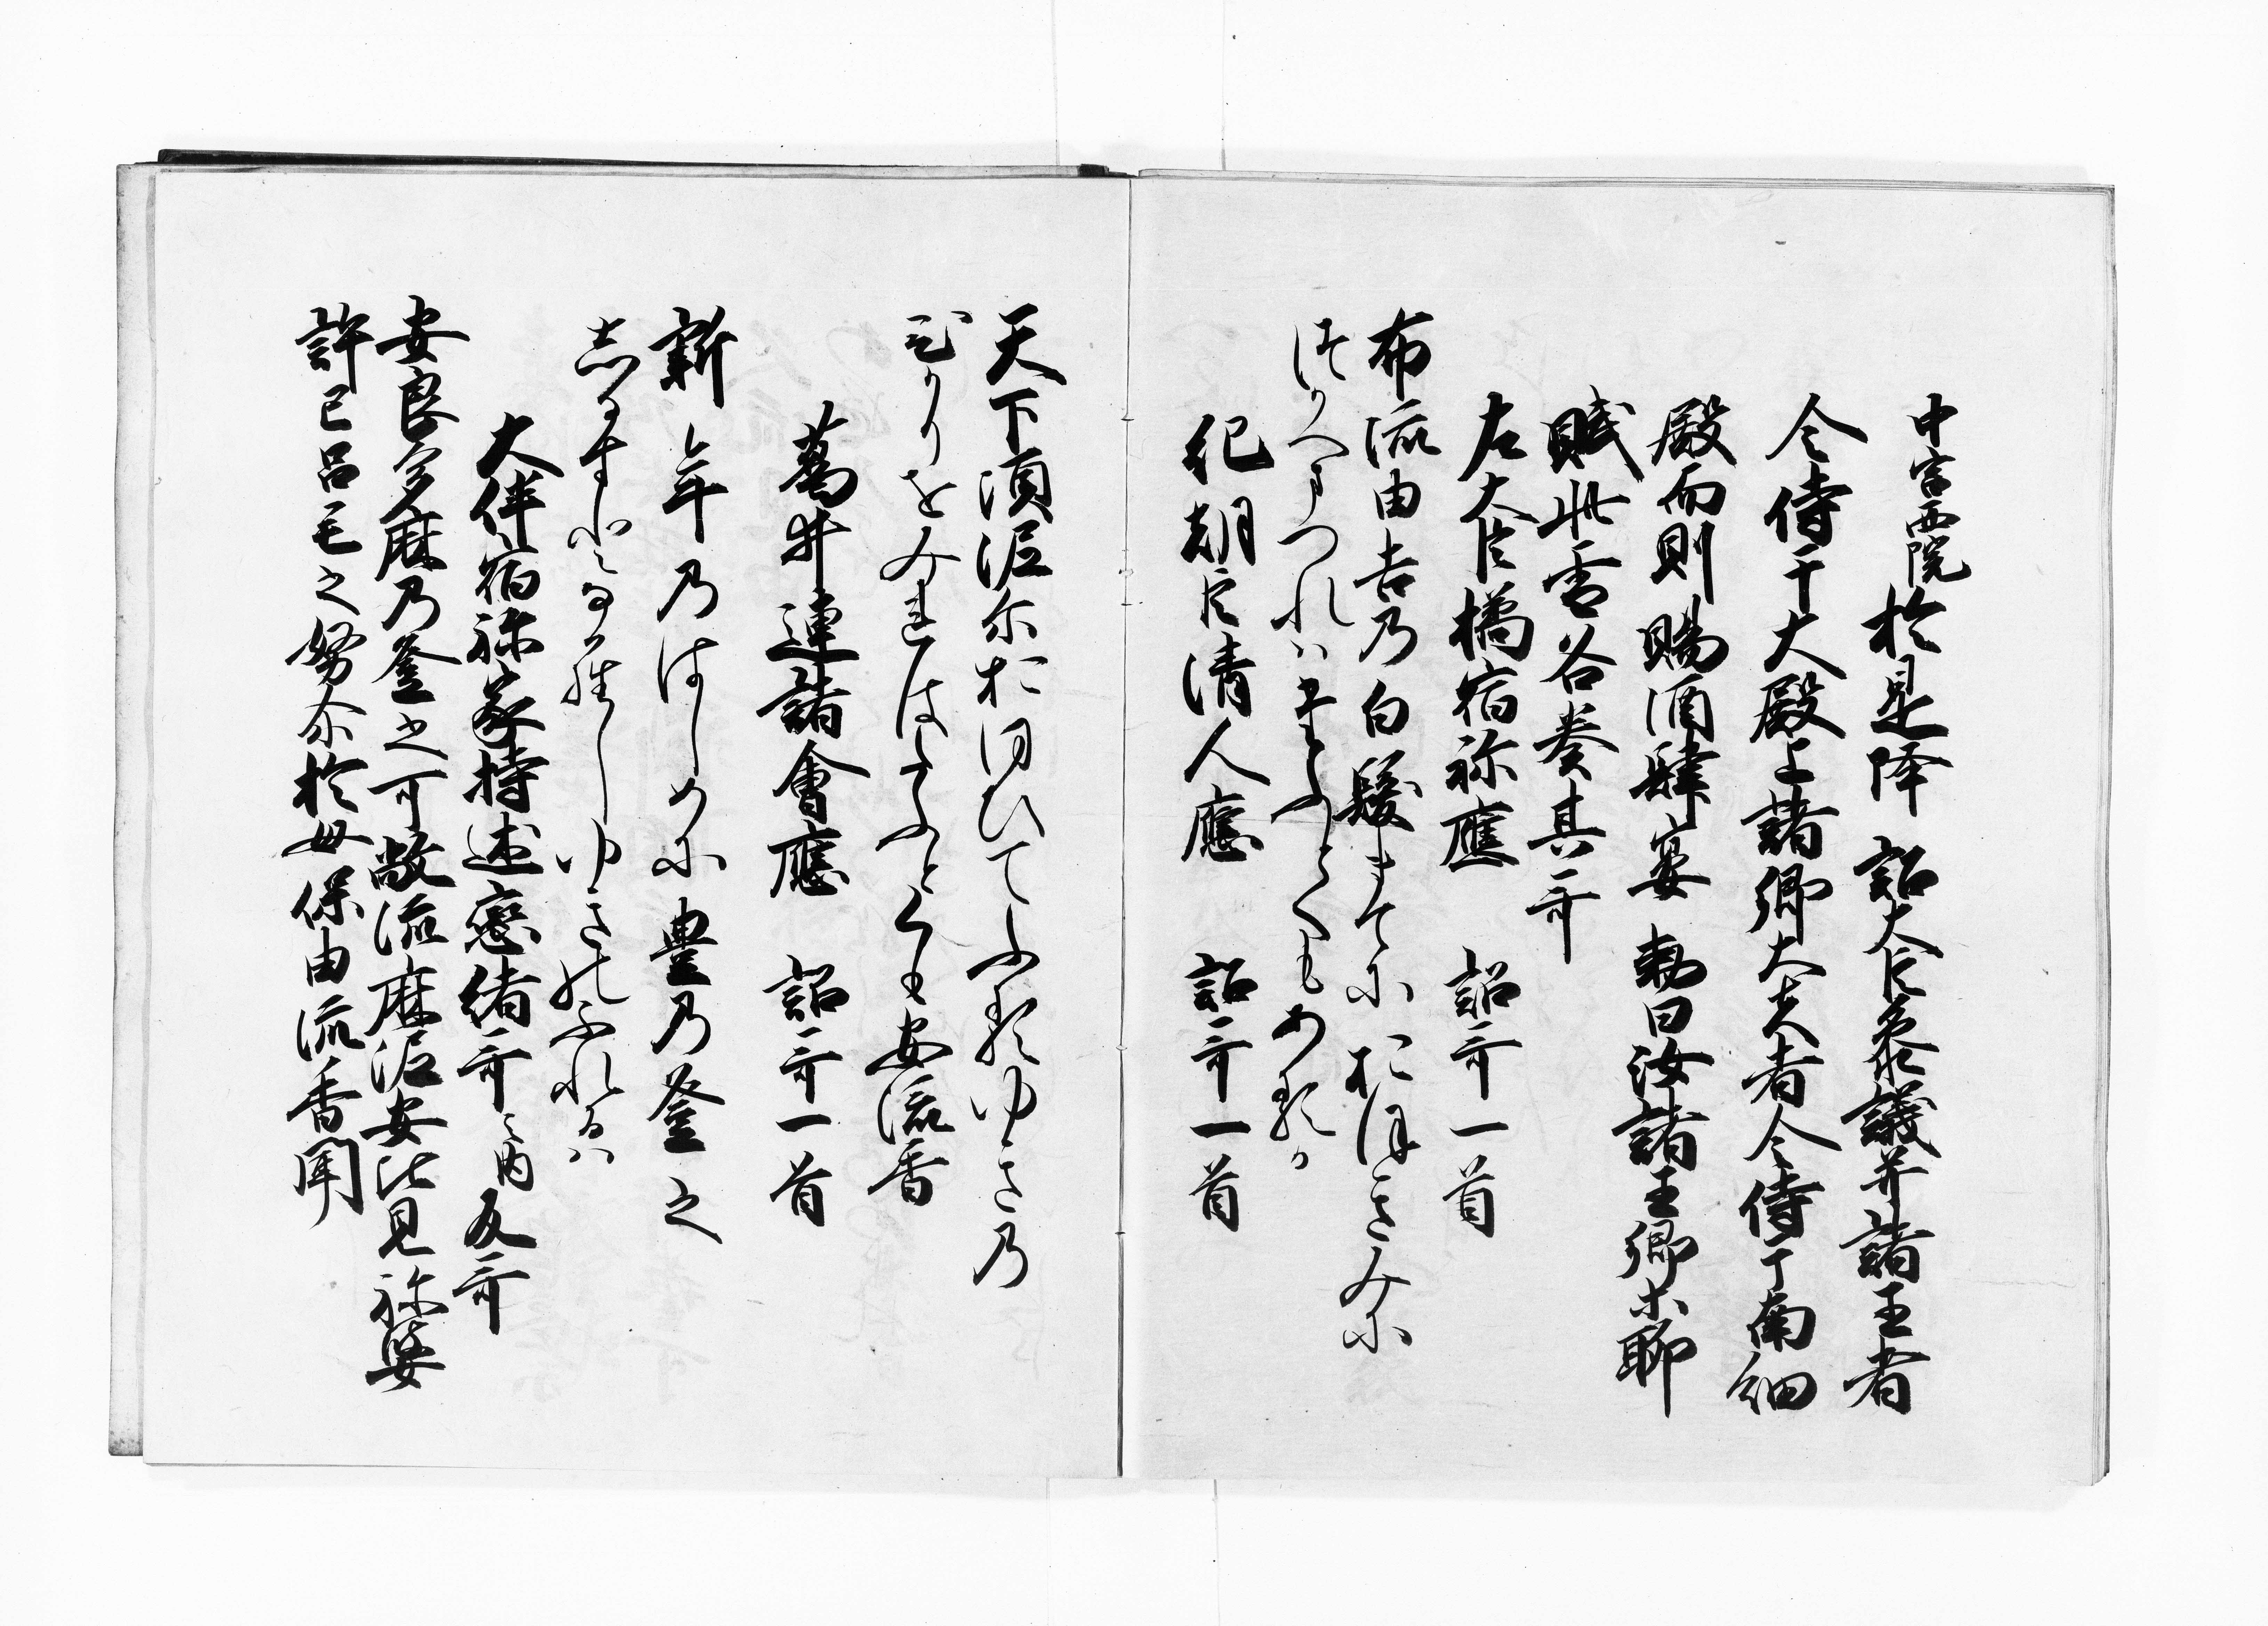 中宮西院於是降　詔大臣参議并諸王者
令侍于大殿上諸卿大夫者令侍于南細
殿而則賜酒肆宴　勅曰汝諸王卿等聊
賦此雪各奏其哥
左大臣橘宿祢應　詔哥一首
布流由吉乃白髪まてにおほきみに
つかへまつれはたふとくもあるか
紀朝臣清人應　詔哥一首
天下須泥尓おほひてふるゆきの
ひかりをみれはたふとくも安流香
葛井連諸會應　詔哥一首
新年乃はしめに豊乃登之
志るすとならしゆきのふれるは
大伴宿祢家持述戀緒哥之内反哥
安良多麻乃登之可敝流麻泥安比見祢婆
許己呂毛之努尓於母保由流香聞